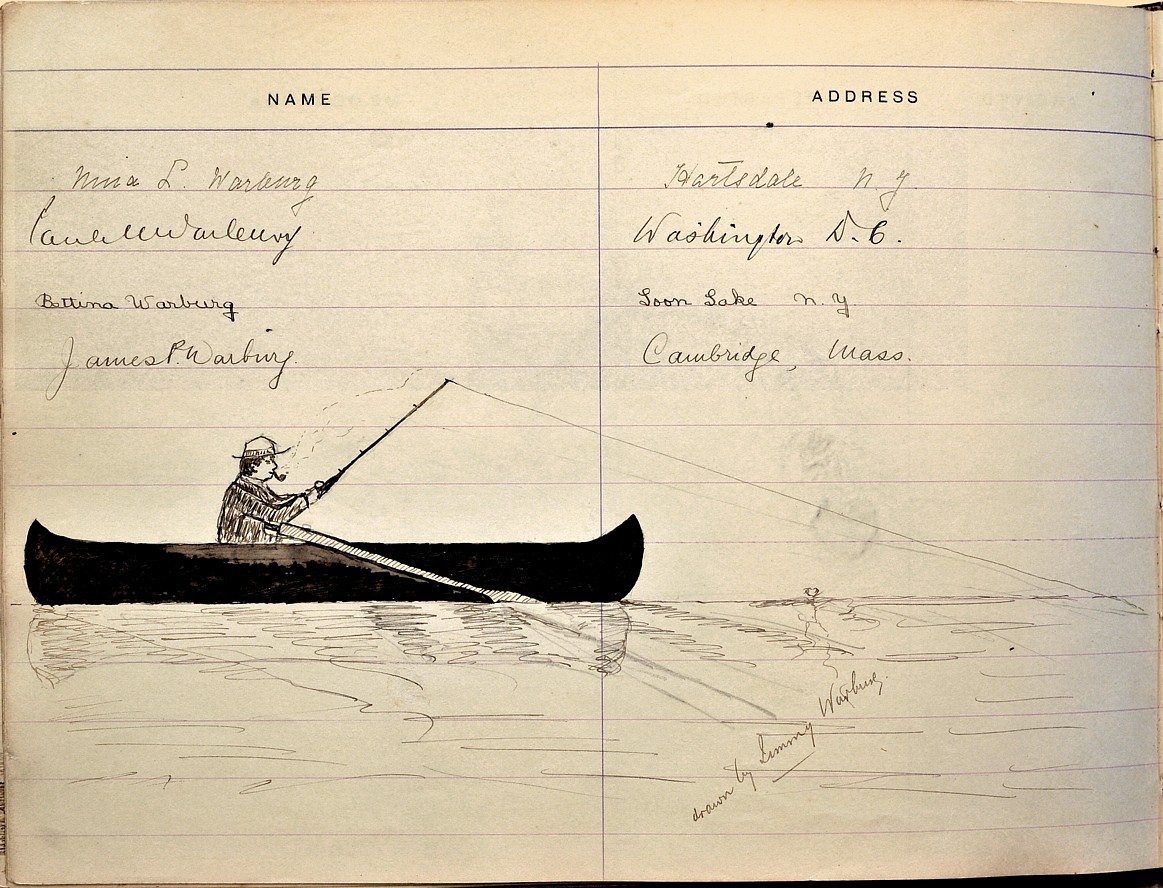 NAME ADDRESS
Nina L. Warburg Hartsdale N. Y.
Paul M Warburg Washington D. C.
Bettina Warburg Loon Lake N. Y.
James P. Warburg. Cambridge, Mass.
drawn by Jimmy Warburg.